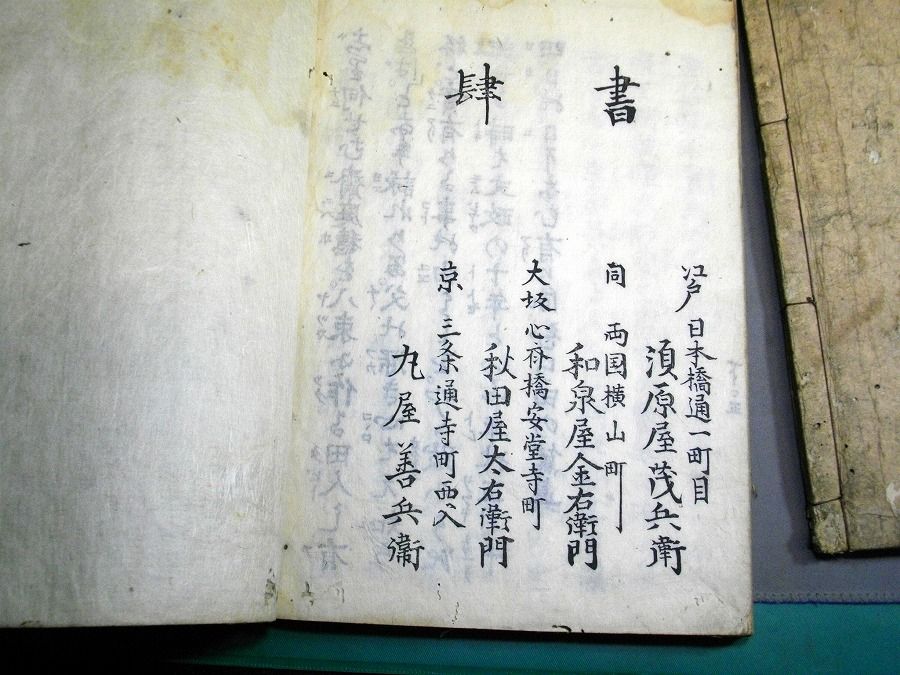 書肆
江戸日本橋通一町目
須原屋茂兵衛
同 両国横山町
和泉屋金右衛門
大坂心斎橋安堂寺町
秋田屋太右衛門
京 三条通寺町西入
丸屋善兵衛